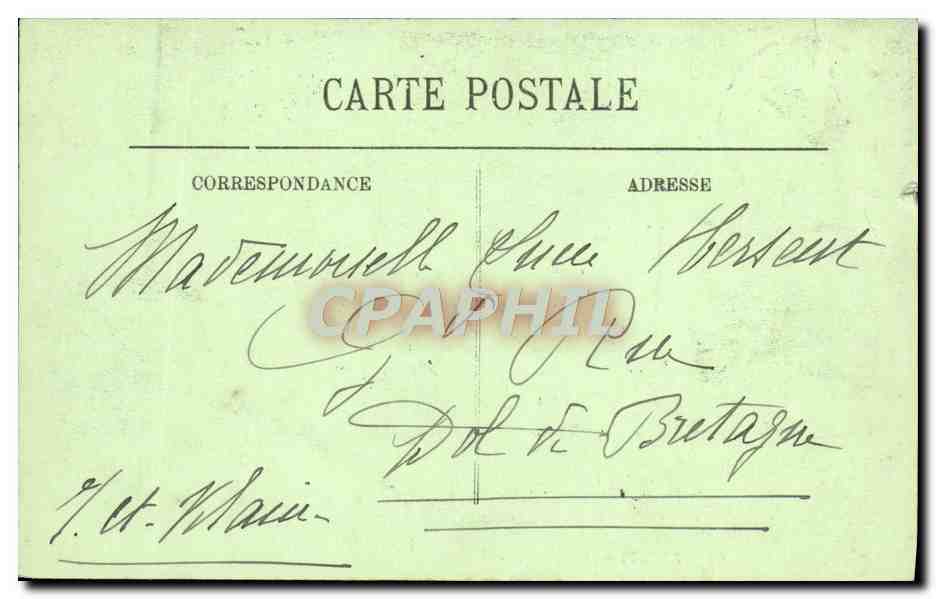 CARTE POSTALE
CORRESPONDANCE
ADRESSE
Mademoiselle Hersent
CPAPHIL
Gde Rue
Dol de Bretagne
I. et Vilaine